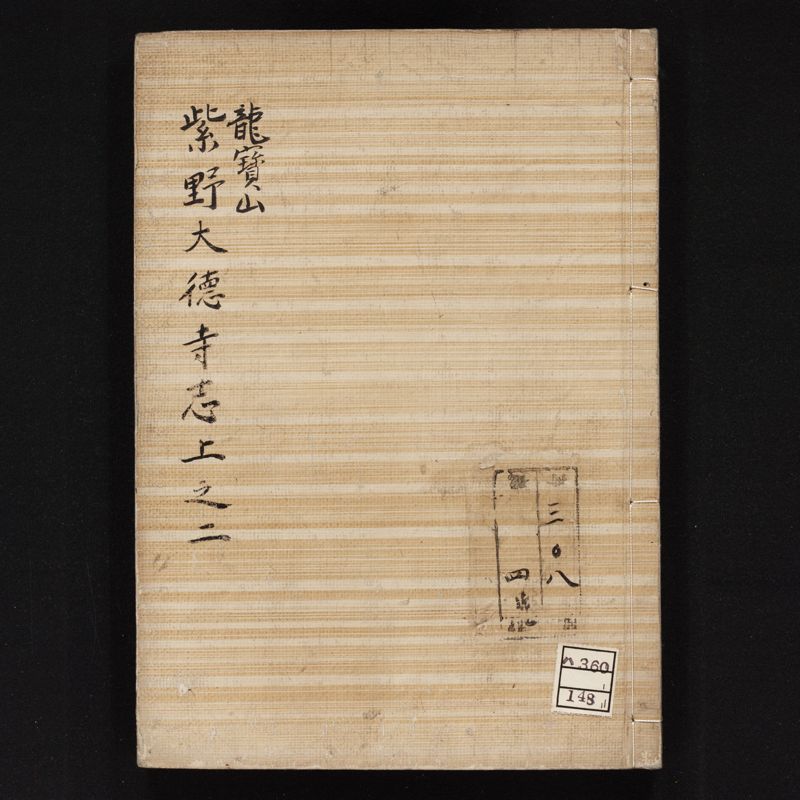 龍寳山
紫野大徳寺志上之二
三〇八
四
360
148